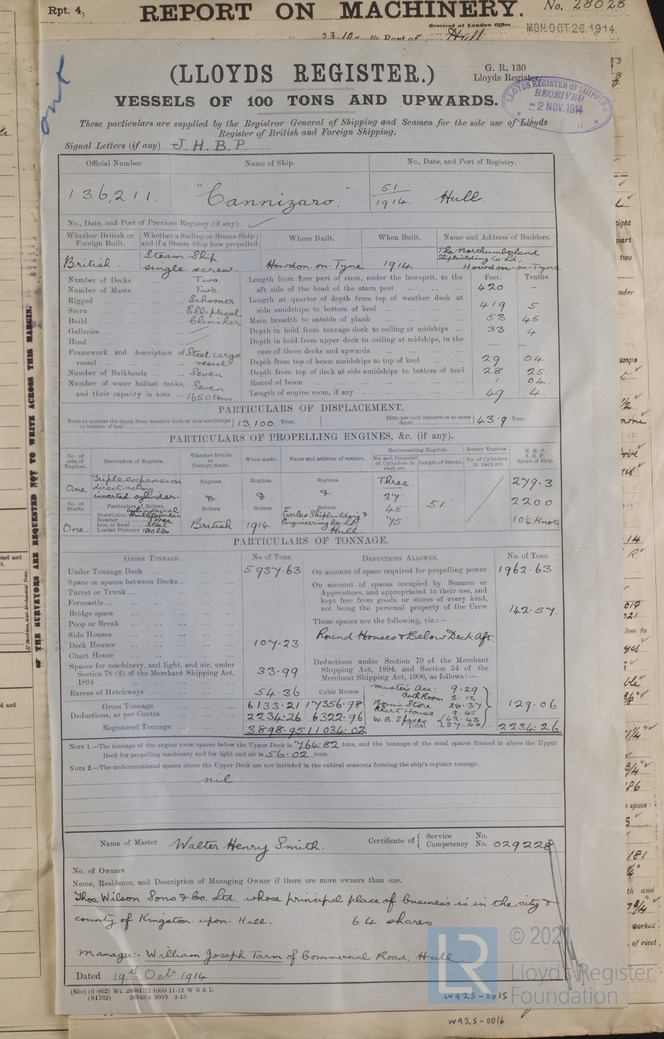 Rpt. 4,
REPORT ON MACHINERY.
No. 28028
Received at London Office
MON. OCT 26. 1914
23-10-14 Port of Hull
(LLOYDS REGISTER.)
G. R. 130
Lloyds Register
VESSELS OF 100 TONS AND UPWARDS.
LLOYD'S REGISTER OF SHIPPING
RECEIVED
2 NOV. 1914
These particulars are supplied by the Registrar General of Shipping and Seamen for the sole use of Lloyds
Register of British and Foreign Shipping.
Signal Letters (if any) J. H. B. P.
Official Number. Name of Ship. No., Date, and Port of Registry.
136,211. "Cannizaro." 51/1914 Hull
No., Date, and Port of Previous Registry (if any).
Whether British or Foreign Built. Whether a Sailing or Steam Ship; and if a Steam Ship how propelled. Where Built. When Built. Name and Address of Builders.
British Steam Ship single screw. Howdon-on-Tyne 1914 The Northumberland Shipbuilding Co Ld. Howdon-on-Tyne
Number of Decks Two.
Number of Masts Two.
Rigged Schooner
Stern Elliptical
Build Clincher
Galleries
Head
Framework and description of vessel Steel cargo vessel
Number of Bulkheads Seven.
Number of water ballast tanks, and their capacity in tons Seven 1650 tons.
Feet. Tenths
Length from fore part of stem, under the bowsprit, to the aft side of the head of the stern post 420
Length at quarter of depth from top of weather deck at side amidships to bottom of keel 419 5
Main breadth to outside of plank 53 45
Depth in hold from tonnage deck to ceiling at midships 33 4
Depth in hold from upper deck to ceiling at midships, in the case of three decks and upwards
Depth from top of beam amidships to top of keel 29 04
Depth from top of deck at side amidships to bottom of keel 28 25
Round of beam 1 04.
Length of engine room, if any 49 4.
PARTICULARS OF DISPLACEMENT.
Total to quarter the depth from weather deck at side amidships to bottom of keel 13,100. Tons. Ditto per inch immersion at same depth 43.9 Tons.
PARTICULARS OF PROPELLING ENGINES, &c. (if any).
No. of sets of Engines. Description of Engines. Whether British or Foreign made. When made. Name and address of makers. Reciprocating Engines. No. and Diameter of Cylinders in each set. Length of Stroke. Rotary Engines. No. of Cylinders in each set. N.H.P. I.H.P. Speed of Ship.
One Triple expansion direct acting inverted cylinder. Engines. & Engines. & Engines. & Three 27" 45" 75" 51" 279.3
No. of Shafts. Particulars of Boilers. Boilers. Boilers. Boilers. 2200
Description Cylindrical Multitubular
Number Three
Iron or Steel Steel
Loaded Pressure 180 lbs
One. British 1914 Earles Shipbuilding & Engineering Co Ld Hull 10½ Knots
PARTICULARS OF TONNAGE.
Gross Tonnage. No of Tons. Deductions Allowed. No. of Tons.
Under Tonnage Deck 5937.63
Space or spaces between Decks
Turret or Trunk
Forecastle
Bridge space
Poop or Break
Side Houses
Deck Houses 107.23
Chart House
Spaces for machinery, and light, and air, under Section 78 (2) of the Merchant Shipping Act, 1894 33.99
Excess of Hatchways 54.36
Cubic Metres
Gross Tonnage 6133.21 17356.98
Deductions, as per Contra 2234.26 6322.96
Registered Tonnage 3898.95 11034.02
On account of space required for propelling power 1962.63
On account of spaces occupied by Seamen or Apprentices, and appropriated to their use, and kept free from goods or stores of every kind, not being the personal property of the Crew 142.57.
These spaces are the following, viz.:—
Round Houses & Below Deck Aft.
Deductions under Section 79 of the Merchant Shipping Act, 1894, and Section 54 of the Merchant Shipping Act, 1906, as follows:—
Master's Acc. 9.29
Bath Room 2.12
Bosn's Store
Chart House 9.45
W. B. Spaces
129.06
Total 2234.26
Note 1.—The tonnage of the engine room spaces below the Upper Deck is 764.82 tons, and the tonnage of the total spaces framed in above the Upper
Deck for propelling machinery and for light and air is 56.02 tons.
Note 2.—The undermentioned spaces above the Upper Deck are not included in the cubical contents forming the ship's register tonnage.
nil
Name of Master Walter Henry Smith. Certificate of { Service No. Competency No. 029228
No. of Owners
Name, Residence, and Description of Managing Owner if there are more owners than one.
Thos. Wilson Sons & Co. Ltd. whose principal place of business is in the city &
county of Kingston upon Hull. 64 shares
Manager:- William Joseph Tarm of Commercial Road, Hull
Dated 19th Oct. 1914
W925-0015
W925-0016
© 2021
LR
Lloyd's Register
Foundation
OF THE SURVEYORS ARE REQUESTED NOT TO WRITE ACROSS THIS MARGIN.